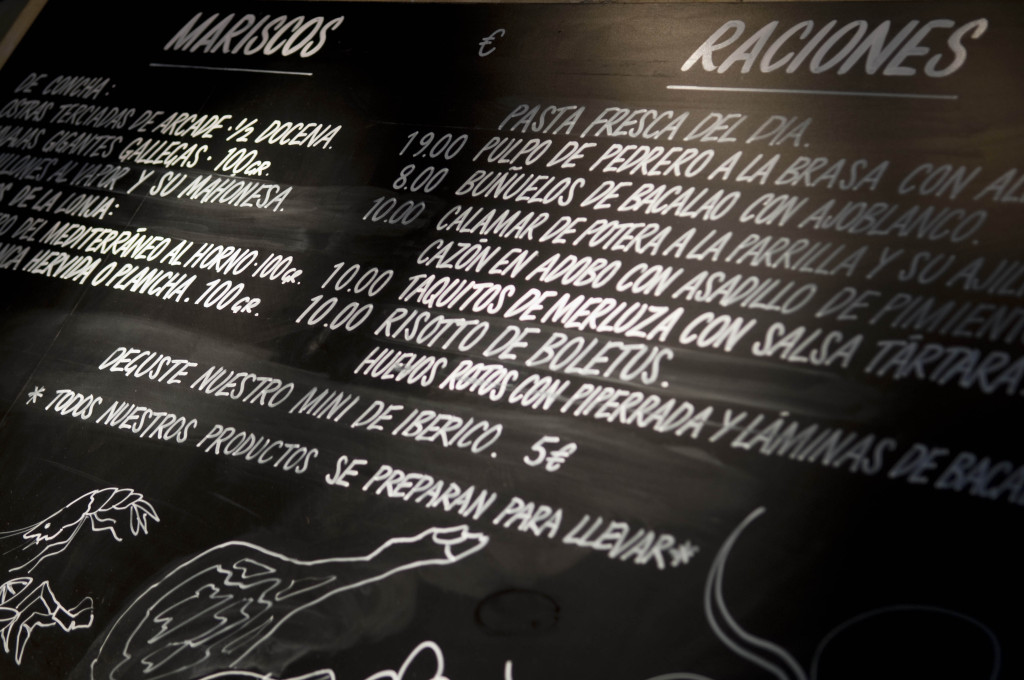 MARISCOS
€
DE CONCHA:
OSTRAS TERCIADAS DE ARCADE · ½ DOCENA. 19.00
GIGANTES GALLEGAS · 100 GR. 8.00
AL VAPOR Y SU MAHONESA. 10.00
DE LA LONJA:
DEL MEDITERRÁNEO AL HORNO · 100 GR. 10.00
HERVIDA O PLANCHA. 100 GR. 10.00
RACIONES
PASTA FRESCA DEL DIA.
PULPO DE PEDRERO A LA BRASA CON
BUÑUELOS DE BACALAO CON AJOBLANCO.
CALAMAR DE POTERA A LA PARRILLA Y SU
CAZÓN EN ADOBO CON ASADILLO DE PIMIENT
TAQUITOS DE MERLUZA CON SALSA TÁRTARA
RISOTTO DE BOLETUS.
HUEVOS ROTOS CON PIPERRADA Y LÁMINAS DE BACA
DEGUSTE NUESTRO MINI DE IBERICO. 5€
* TODOS NUESTROS PRODUCTOS SE PREPARAN PARA LLEVAR *